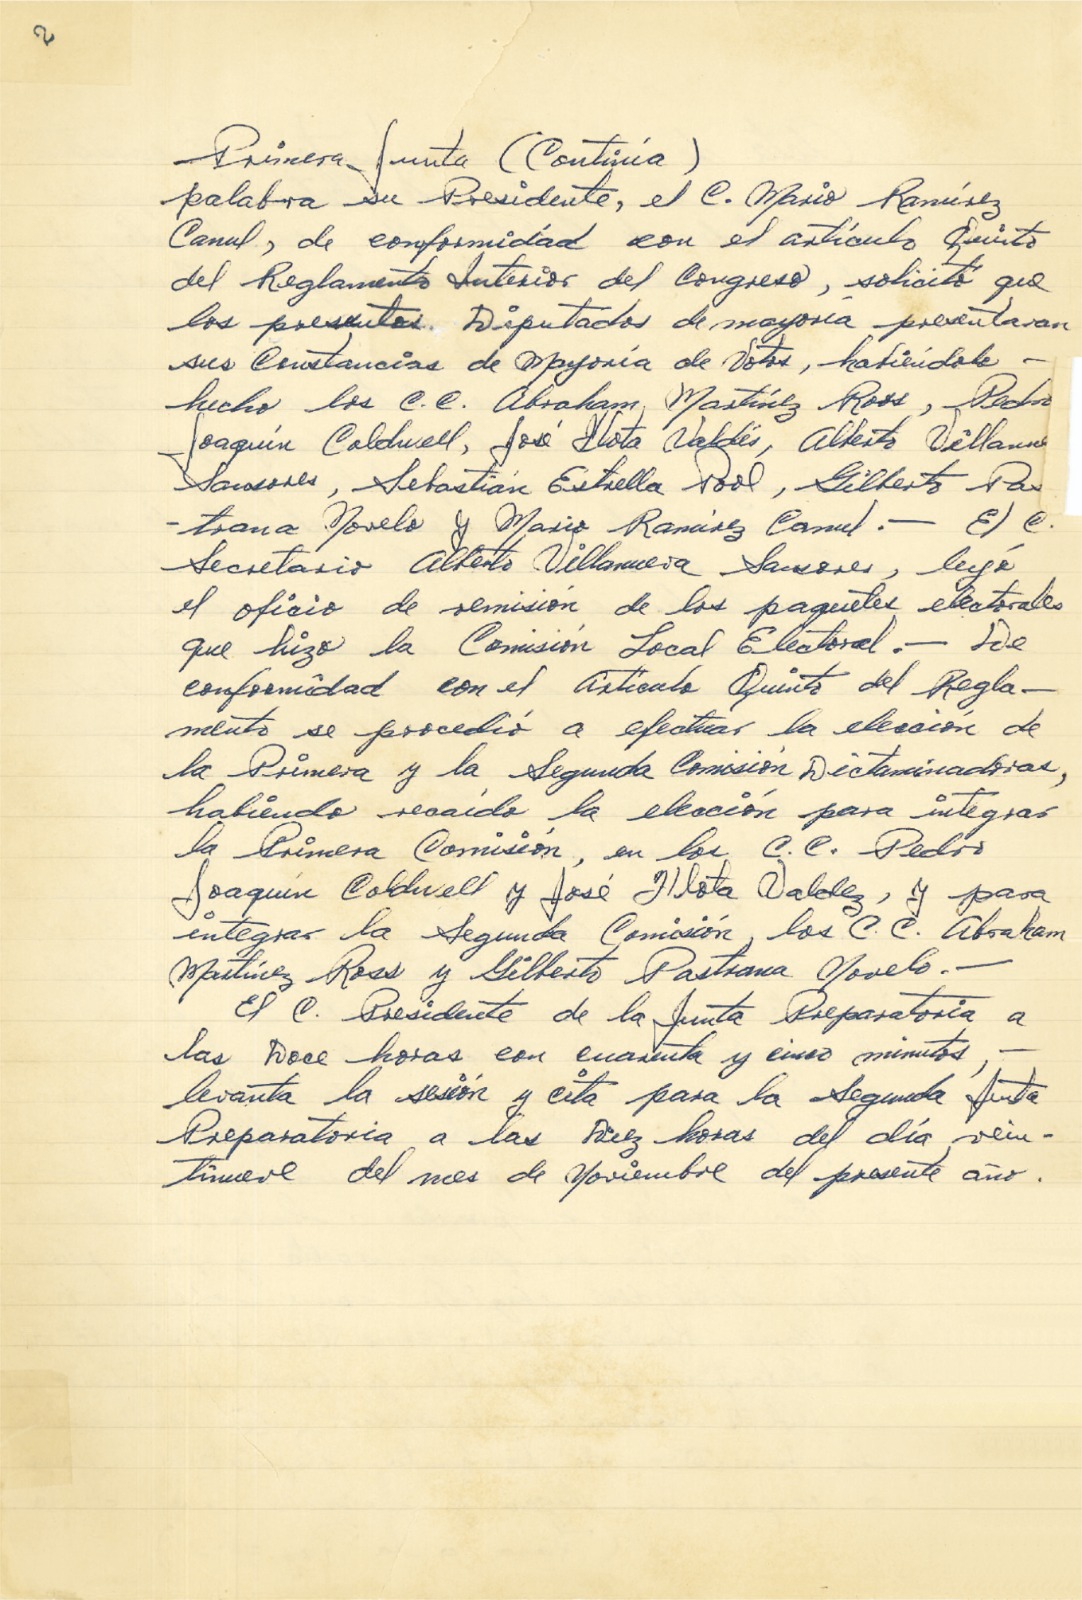 2
Primera Junta (Continúa)
palabra su Presidente, el C. Mario Ramírez
Canul, de conformidad con el artículo Quinto
del Reglamento Interior del Congreso, solicitó que
los presentes Diputados de mayoría presentaran
sus Constancias de Mayoría de Votos, habiéndolo -
hecho los C.C. Abraham Martínez Ross, Pedro
Joaquín Coldwell, José Flota Valdés, Alberto Villanue
Sansores, Sebastián Estrella Pool, Gilberto Pas
-trana Novelo y Mario Ramírez Canul.- El C.
Secretario Alberto Villanueva Sansores, leyó
el oficio de remisión de los paquetes electorales
que hizo la Comisión Local Electoral.- De
conformidad con el Artículo Quinto del Regla-
mento se procedió a efectuar la elección de
la Primera y la Segunda Comisión Dictaminadoras,
habiendo recaído la elección para integrar
la Primera Comisión, en los C.C. Pedro
Joaquín Coldwell y José Flota Valdez, y para
integrar la Segunda Comisión, los C.C. Abraham
Martínez Ross y Gilberto Pastrana Novelo.-
El C. Presidente de la Junta Preparatoria a
las Doce horas con cuarenta y cinco minutos, -
levanta la sesión y cita para la Segunda Junta
Preparatoria a las Diez horas del día vein-
tinueve del mes de Noviembre del presente año.